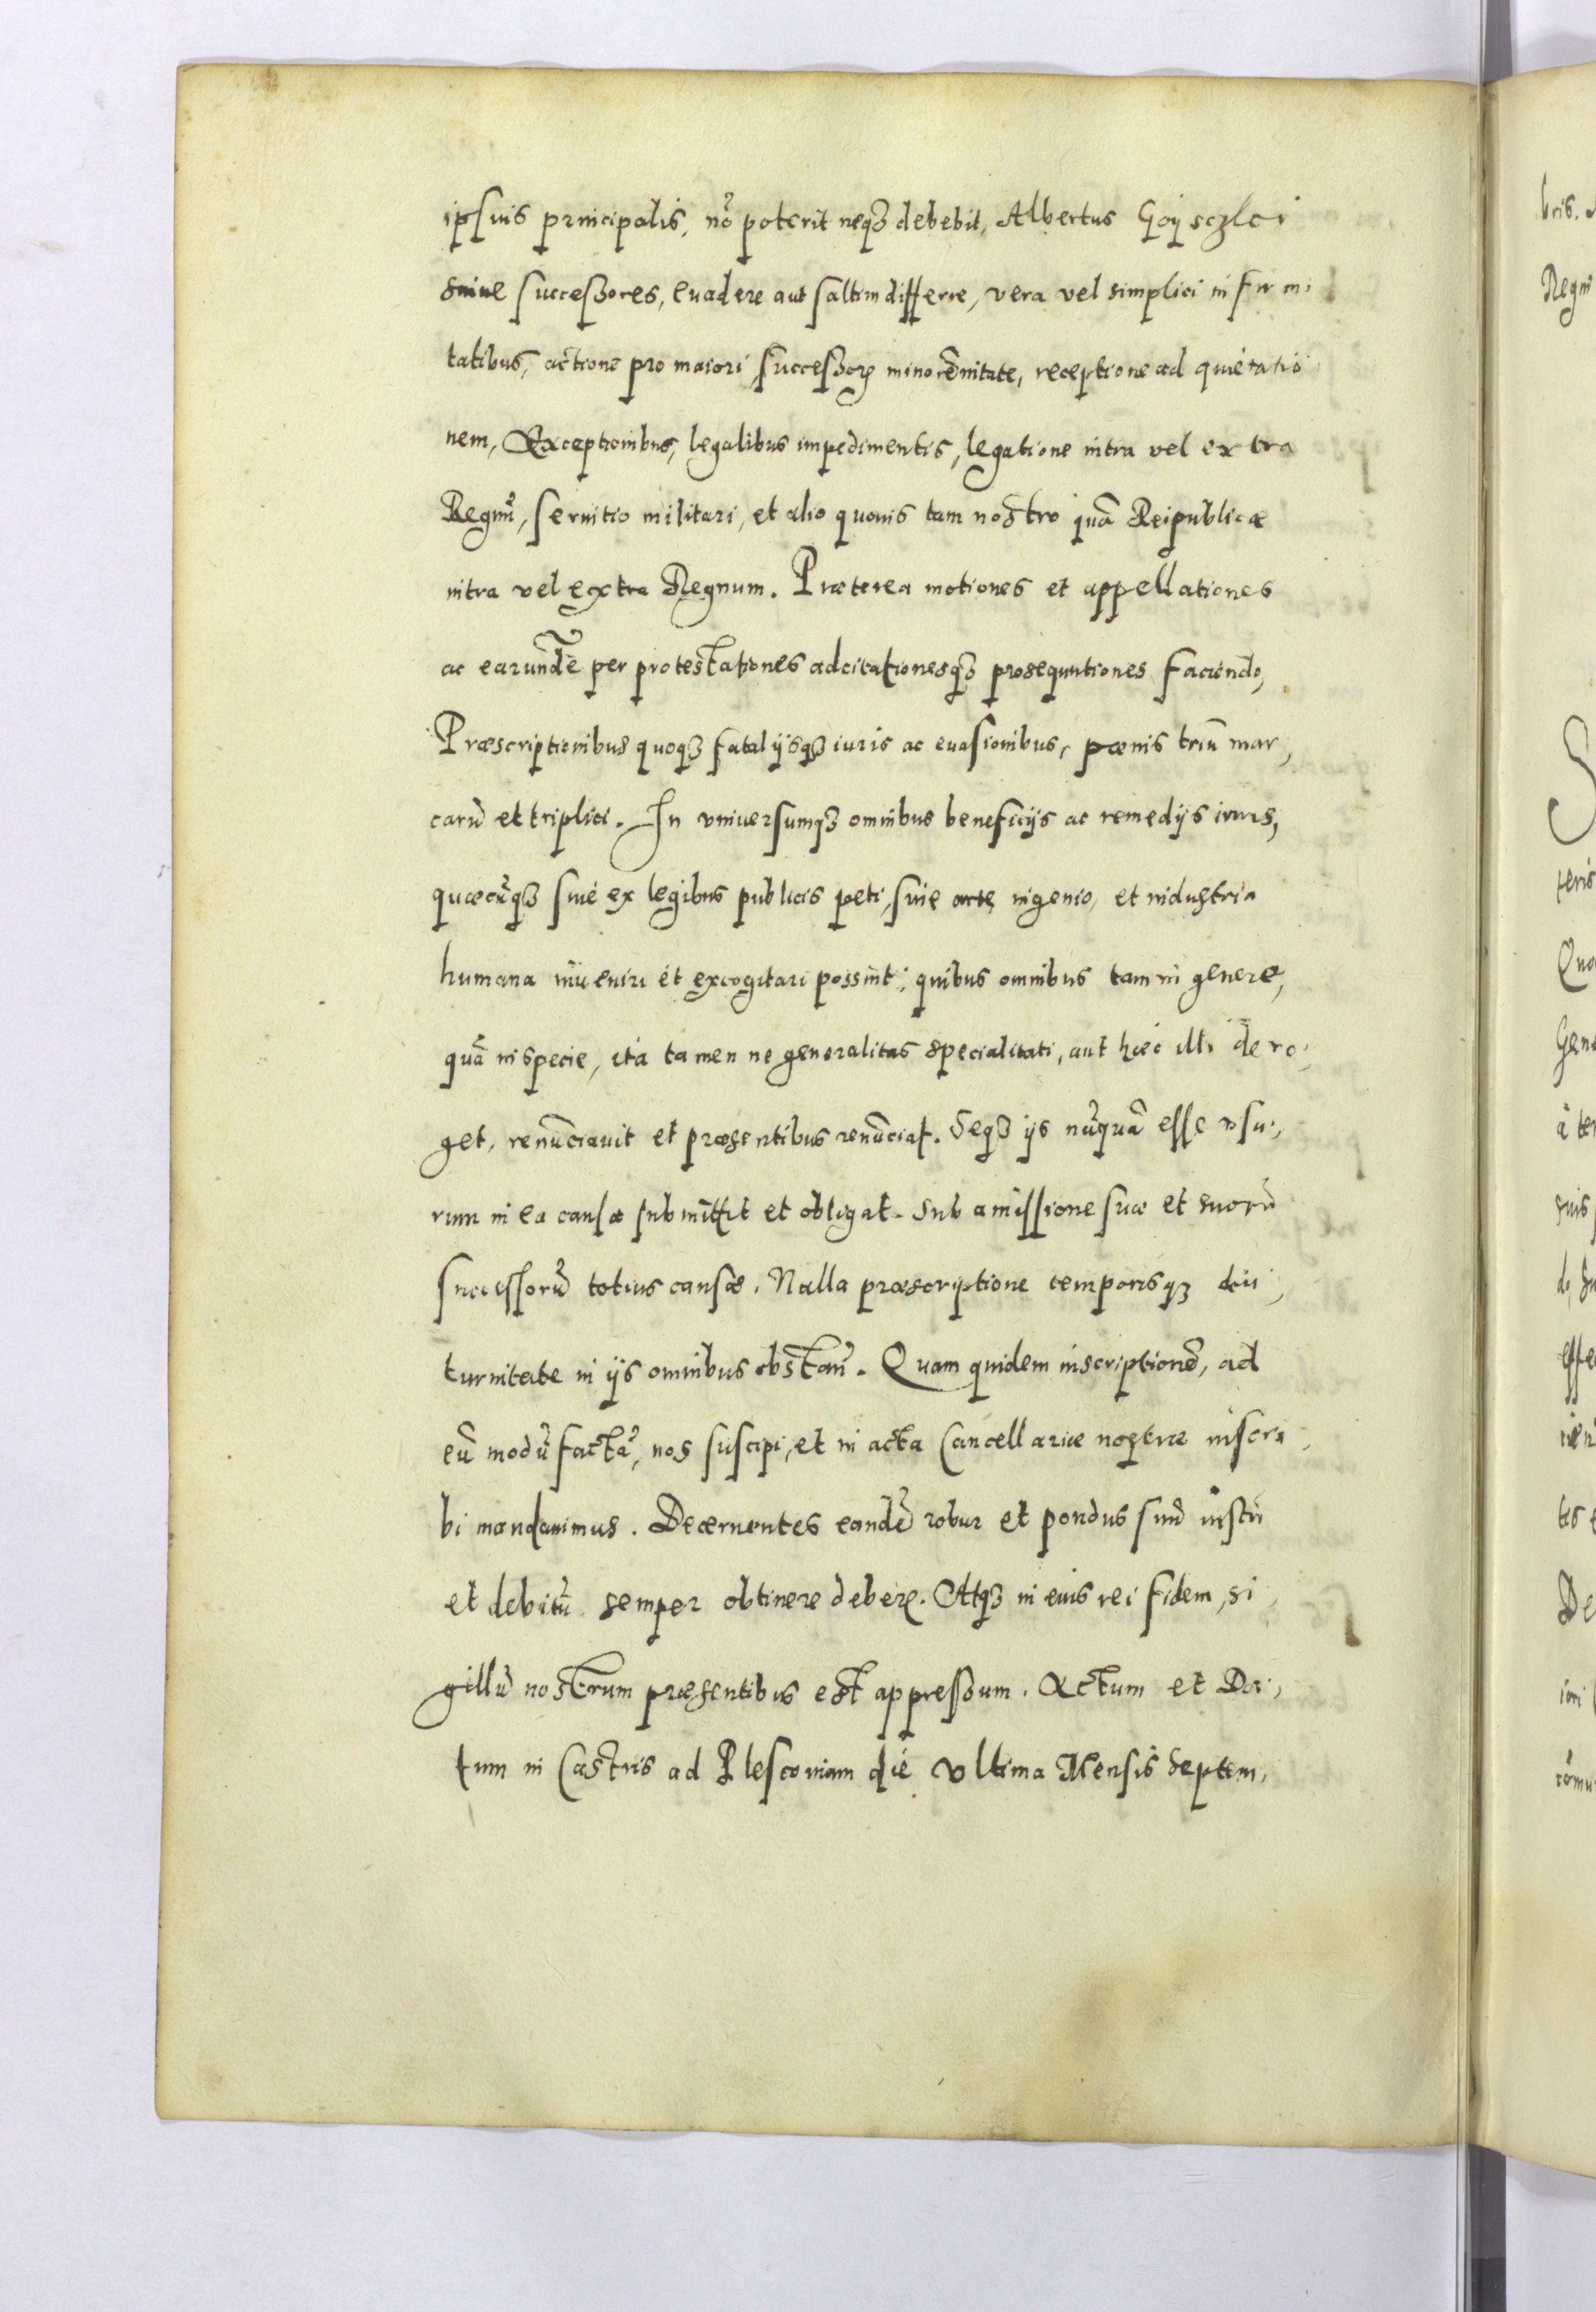 ipsius principalis, nõ poterit neqꝫ debebit, Albertus Goÿsczlei
suiue successores, euadere aut saltim differre, vera vel simplici infirmi,
tatibus, actione pro maiori, successorꝝ minorẽnitate, receptione ad quietatio
nem, Exceptionibus, legalibus impedimentis, legatione intra vel extra
Regnũ, seruitio militari, et alio quouis tam nostro quã Reipublicæ
intra vel extra Regnum. Præterea motiones et appellationes
ac earundẽ per protestationes adcitationesqꝫ prosequutiones faciendo,
Præscriptionibus quoqꝫ fatalÿsqꝫ iuris ac euasionibus, pœnis triũ mar,
carũ et triplici. In vniuersumqꝫ omnibus beneficÿs ac remedÿs iuris,
quæcũqꝫ siue ex legibus publicis peti, siue arte, ingenio, et industria
humana inueniri et excogitari possint; quibus omnibus tam in genere,
quã in specie, ita tamen ne generalitas specialitati, aut hæc illi dero,
get, renũciauit et præsentibus renũciat. Seqꝫ ÿs nũquã esse vsu,
rum in ea causa submittit et obligat. Sub amissione suæ et suorũ
successorũ totius causæ. Nulla præscriptione temporisqꝫ diu,
turnitate in ÿs omnibus obstañ. Quam quidem inscriptionẽ, ad
eũ modũ factã, nos suscipi, et in acta Cancellariæ nostræ inscri,
bi mandauimus. Decernentes eandẽ robur et pondus suũ iustũ
et debitũ semper obtinere debere. Atqꝫ in eius rei fidem, si,
gillũ nostrum præsentibus est appressum. Actum et Da,
tum in Castris ad Plescouiam die vltima Mensis Septem,
bris.
Regni
teris
Quo
Gene
à ter
suis
effe
tis
De